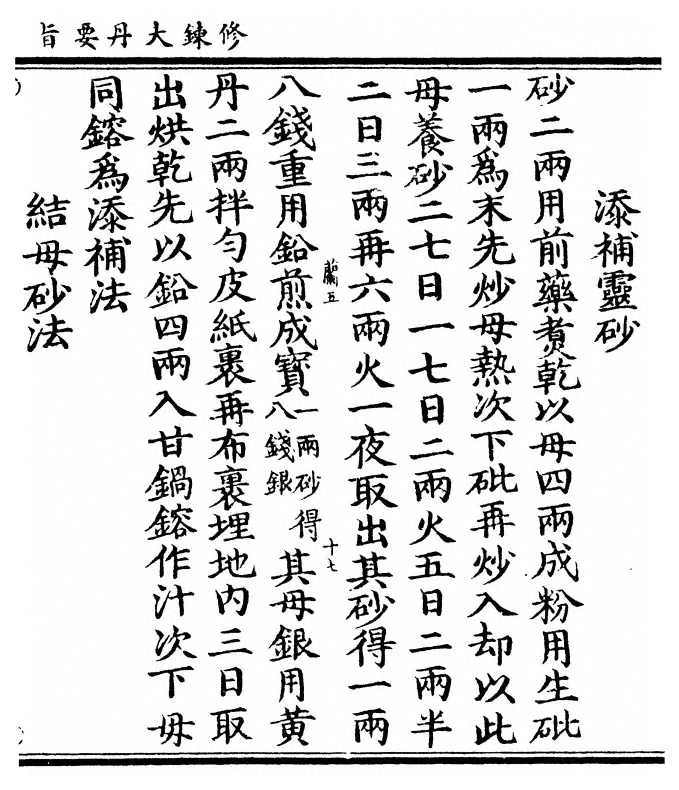 修鍊大丹要旨
添補靈砂
砂二兩用前藥煑乾以母四兩成粉用生砒
一兩爲末先炒母熱次下砒再炒入却以此
母養砂二七日一七日二兩火五日二兩半
二日三兩再六兩火一夜取出其砂得一兩
蘭五
十七
八錢重用鉛煎成寳一兩砂得八錢銀其母銀用黄
丹二兩拌勻皮紙裹再布裹埋地内三日取
出烘乾先以鉛四兩入甘鍋鎔作汁次下母
同鎔爲添補法
結母砂法